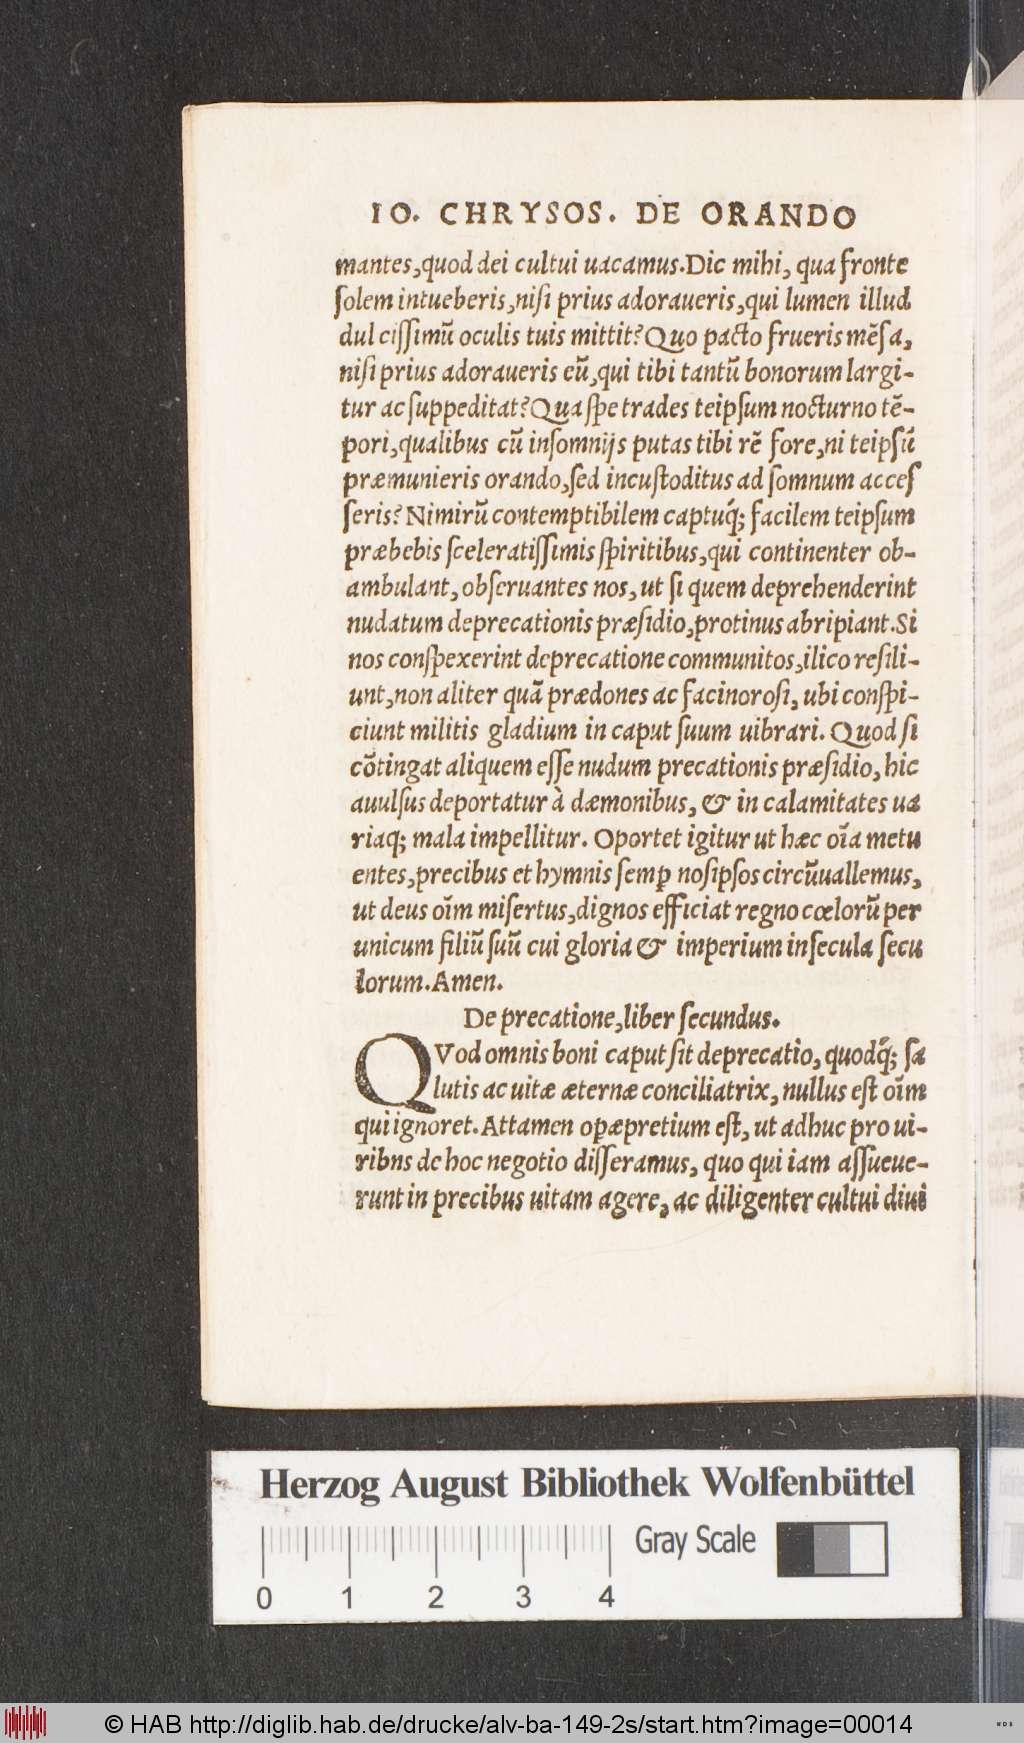 IO. CHRYSOS. DE ORANDO
mantes,quod dei cultui uacamus.Dic mihi, qua fronte
ſolem intueberis,niſi prius adoraueris,qui lumen illud
dul ciſſimũ oculis tuis mittit?Quo pacto frueris mẽſa,
niſi prius adoraueris eũ,qui tibi tantũ bonorum largi-
tur ac ſuppeditat?Qua ſpe trades teipſum nocturno tẽ-
pori,qualibus cũ inſomnijs putas tibi rẽ fore,ni teipſũ
præmunieris orando,ſed incuſtoditus ad ſomnum acceſ
ſeris?Nimirũ contemptibilem captuq́; facilem teipſum
præbebis ſceleratiſſimis ſpiritibus,qui continenter ob-
ambulant,obſeruantes nos,ut ſi quem deprehenderint
nudatum deprecationis præſidio,protinus abripiant.Si
nos conſpexerint deprecatione communitos,ilico reſili-
unt,non aliter quã prædones ac facinoroſi, ubi conſpi-
ciunt militis gladium in caput ſuum uibrari. Quod ſi
cõtingat aliquem eſſe nudum precationis præſidio, hic
auulſus deportatur à dæmonibus, & in calamitates ua
riaq; mala impellitur. Oportet igitur ut hæc oĩa metu
entes,precibus et hymnis ſemꝑ noſipſos circũuallemus,
ut deus oĩm miſertus,dignos efficiat regno cœlorũ per
unicum filiũ ſuũ cui gloria & imperium in ſecula ſecu
lorum.Amen.
De precatione,liber ſecundus.
QVod omnis boni caput ſit deprecatio, quodq́; ſa
lutis ac uitæ æternæ conciliatrix, nullus eſt oĩm
qui ignoret.Attamen oꝑæpretium eſt, ut adhuc pro ui-
ribns de hoc negotio diſſeramus, quo qui iam aſſueue-
runt in precibus uitam agere, ac diligenter cultui diui
Herzog August Bibliothek Wolfenbüttel
Gray Scale
0 1 2 3 4
© HAB http://diglib.hab.de/drucke/alv-ba-149-2s/start.htm?image=00014